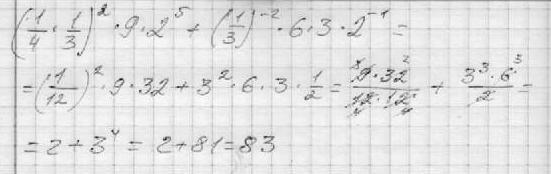 (1/4 · 1/3)² · 9 · 2⁵ + (1/3)⁻² · 6 · 3 · 2⁻¹ =
= (1/12)² · 9 · 32 + 3² · 6 · 3 · 1/2 = (9 · 32)/(12 · 12) + (3³ · 6)/2 =
= 2 + 3⁴ = 2 + 81 = 83